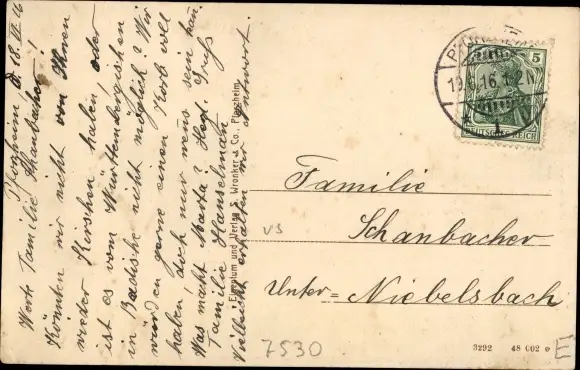 Pforzheim d. 18. VI. 16
Werte Familie Schanbacher!
Könnten wir nicht von Ihnen
wieder Kirschen haben oder
ist es vom Württembergischen
in Badische nicht möglich? Wir
würden gerne einen Korb voll
haben, doch nur wenns sein kann.
Was macht Marta? Herzl. Grüße
Familie Hanselmann
Vielleicht erhalten wir Antwort.
Eigentum und Verlag v. Wronker & Co., Pforzheim
19.6.16. 1-2 N
5
DEUTSCHES REICH
Familie
Schanbacher
Unter-Niebelsbach
VS
7530
3292 48 602
E